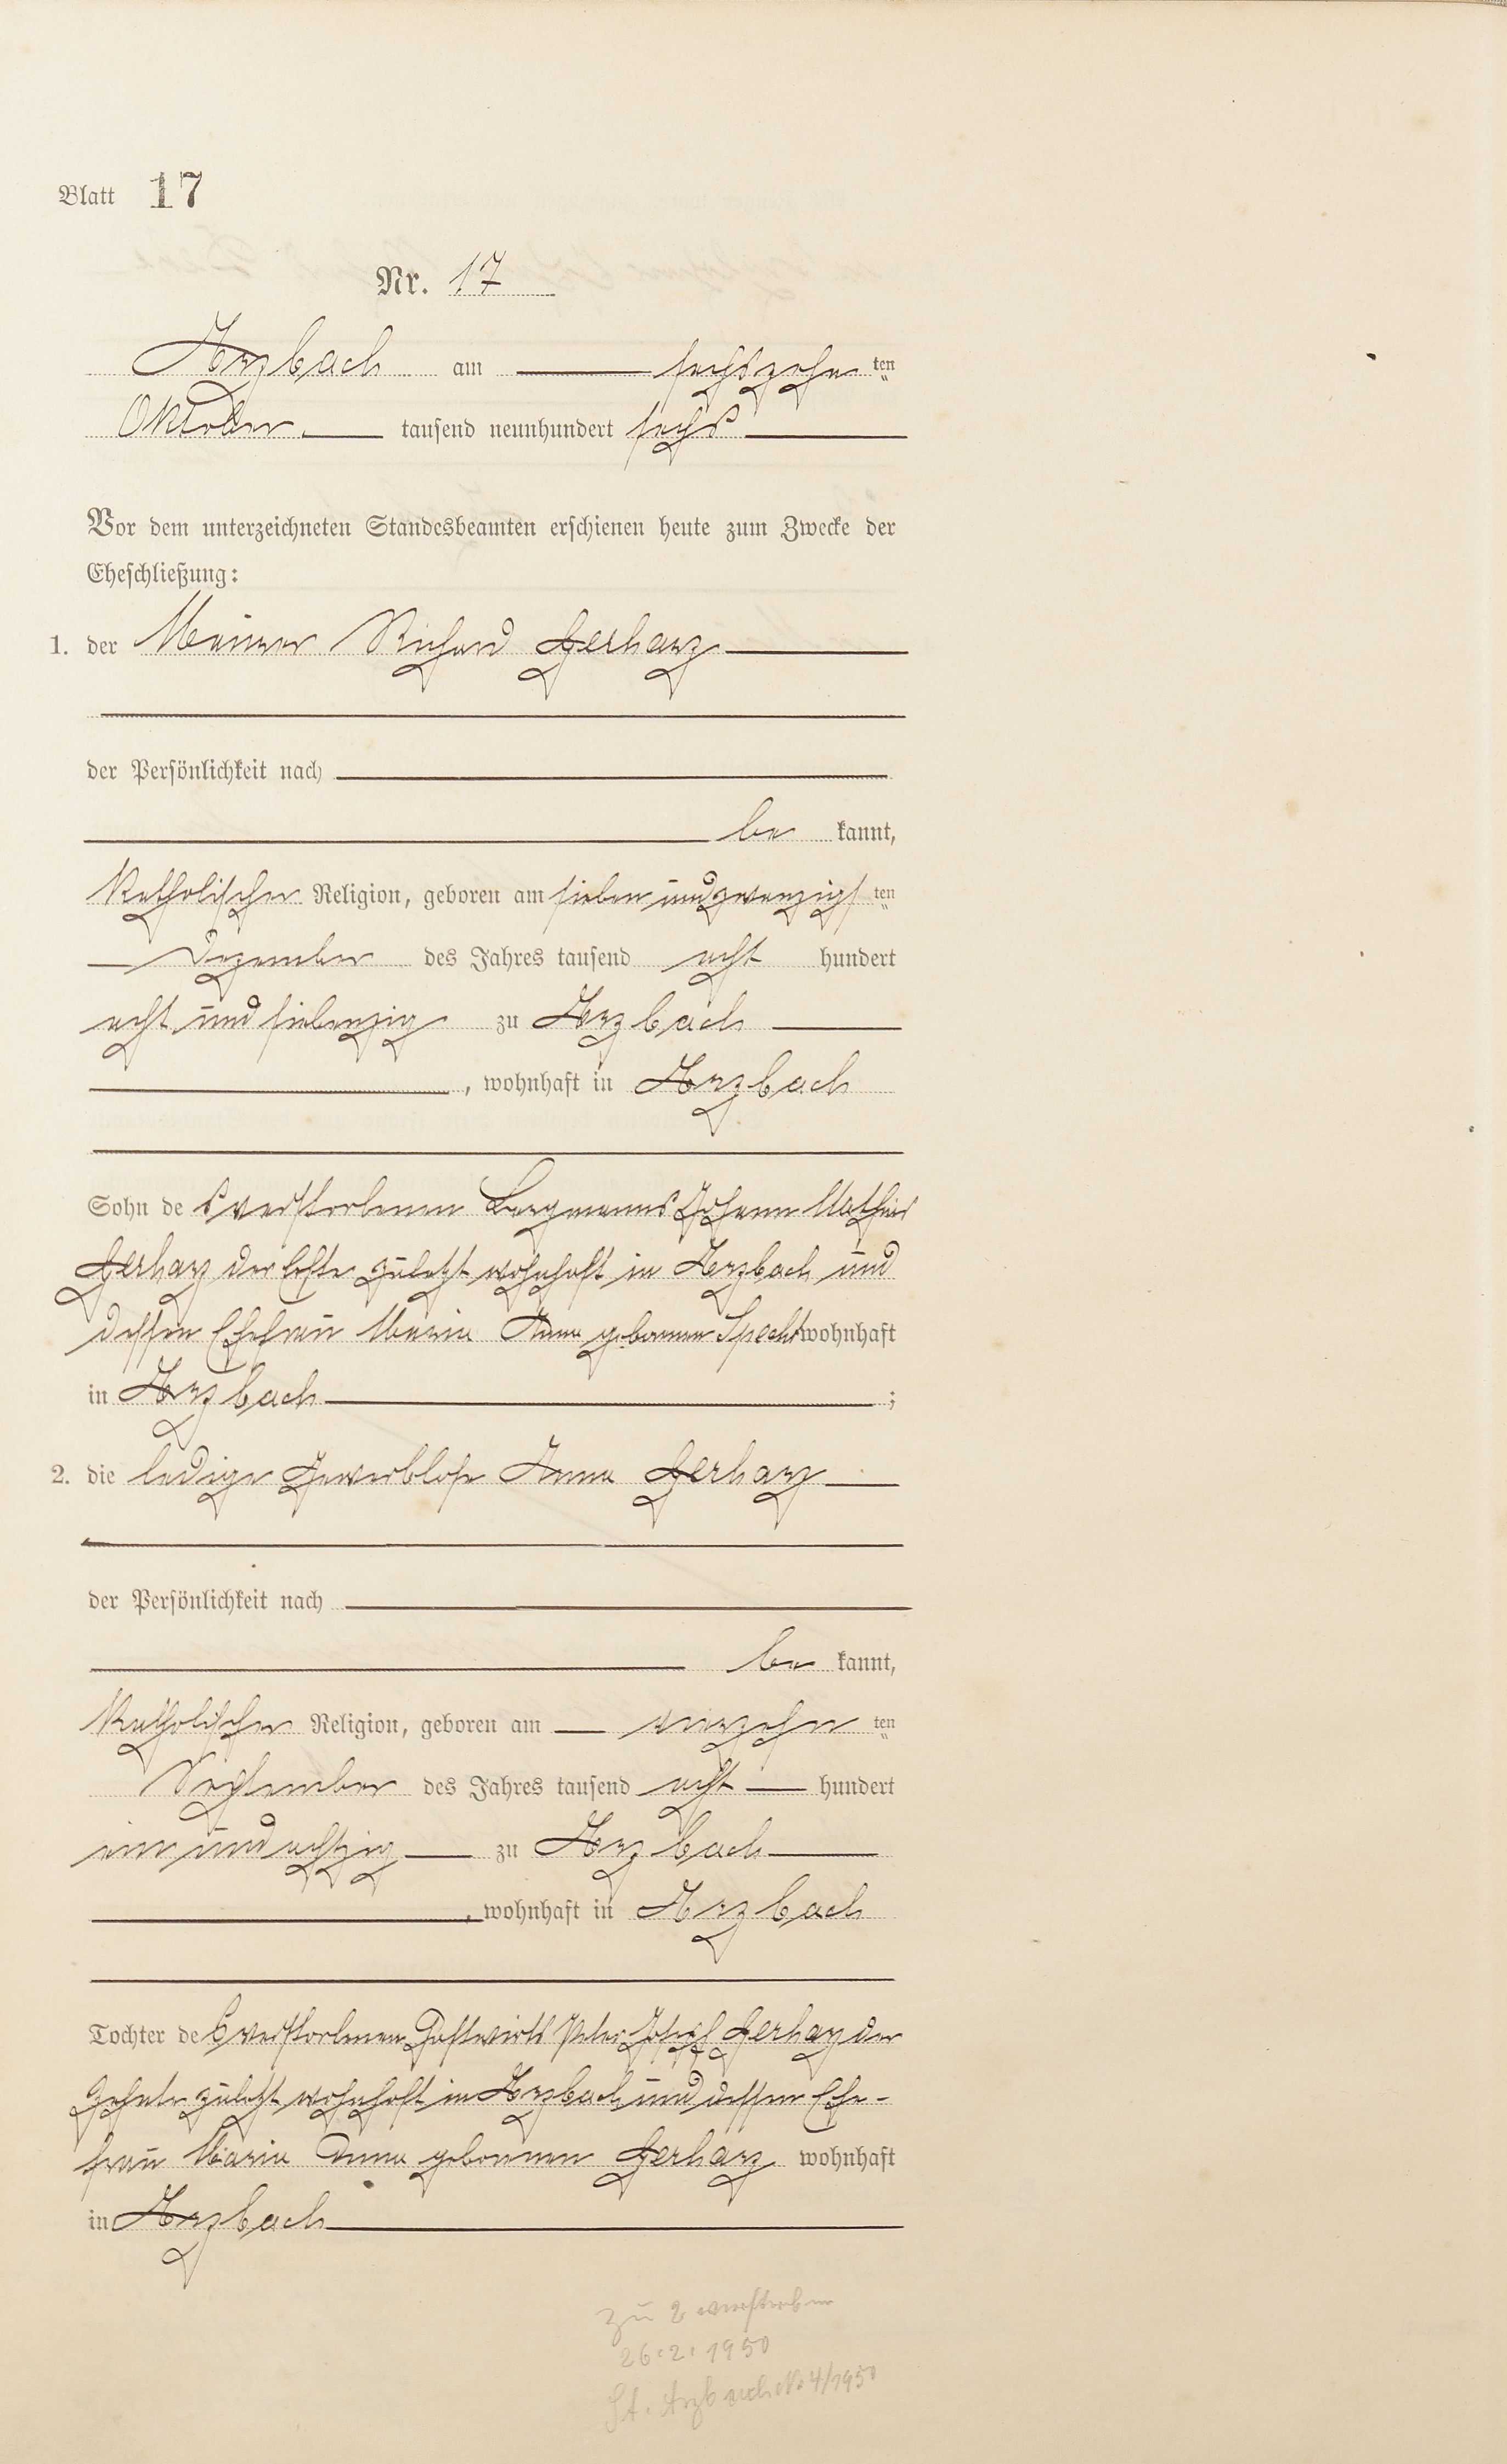 Blatt 17
Nr. 17
Arzbach am sechszehn ten
Oktober tausend neunhundert sechs
Vor dem unterzeichneten Standesbeamten erschienen heute zum Zwecke der
Eheschließung:
1. der Maurer Richard Gerharz
der Persönlichkeit nach
be kannt,
Katholischer Religion, geboren am sieben und zwanzigs ten
Dezember des Jahres tausend acht hundert
acht und siebenzig zu Arzbach
, wohnhaft in Arzbach
Sohn de s verstorbenen Bergmanns Johann Mathias
Gerharz der 6ste zuletzt wohnhaft in Arzbach und
dessen Ehefrau Maria Anna geborenen Specht wohnhaft
in Arzbach ;
2. die ledige Gewerblose Anna Gerharz
der Persönlichkeit nach
be kannt,
Katholischer Religion, geboren am vierzehn ten
September des Jahres tausend acht hundert
ein und achtzig zu Arzbach
, wohnhaft in Arzbach
Tochter de s verstorbenen Gastwirts Peter Josef Gerharz der
Zehnte zuletzt wohnhaft in Arzbach und dessen Ehe-
frau Maria Anna geborenen Gerharz wohnhaft
in Arzbach
zu 2 verstorben
26.2.1950
St. Arzbach No 4/1950